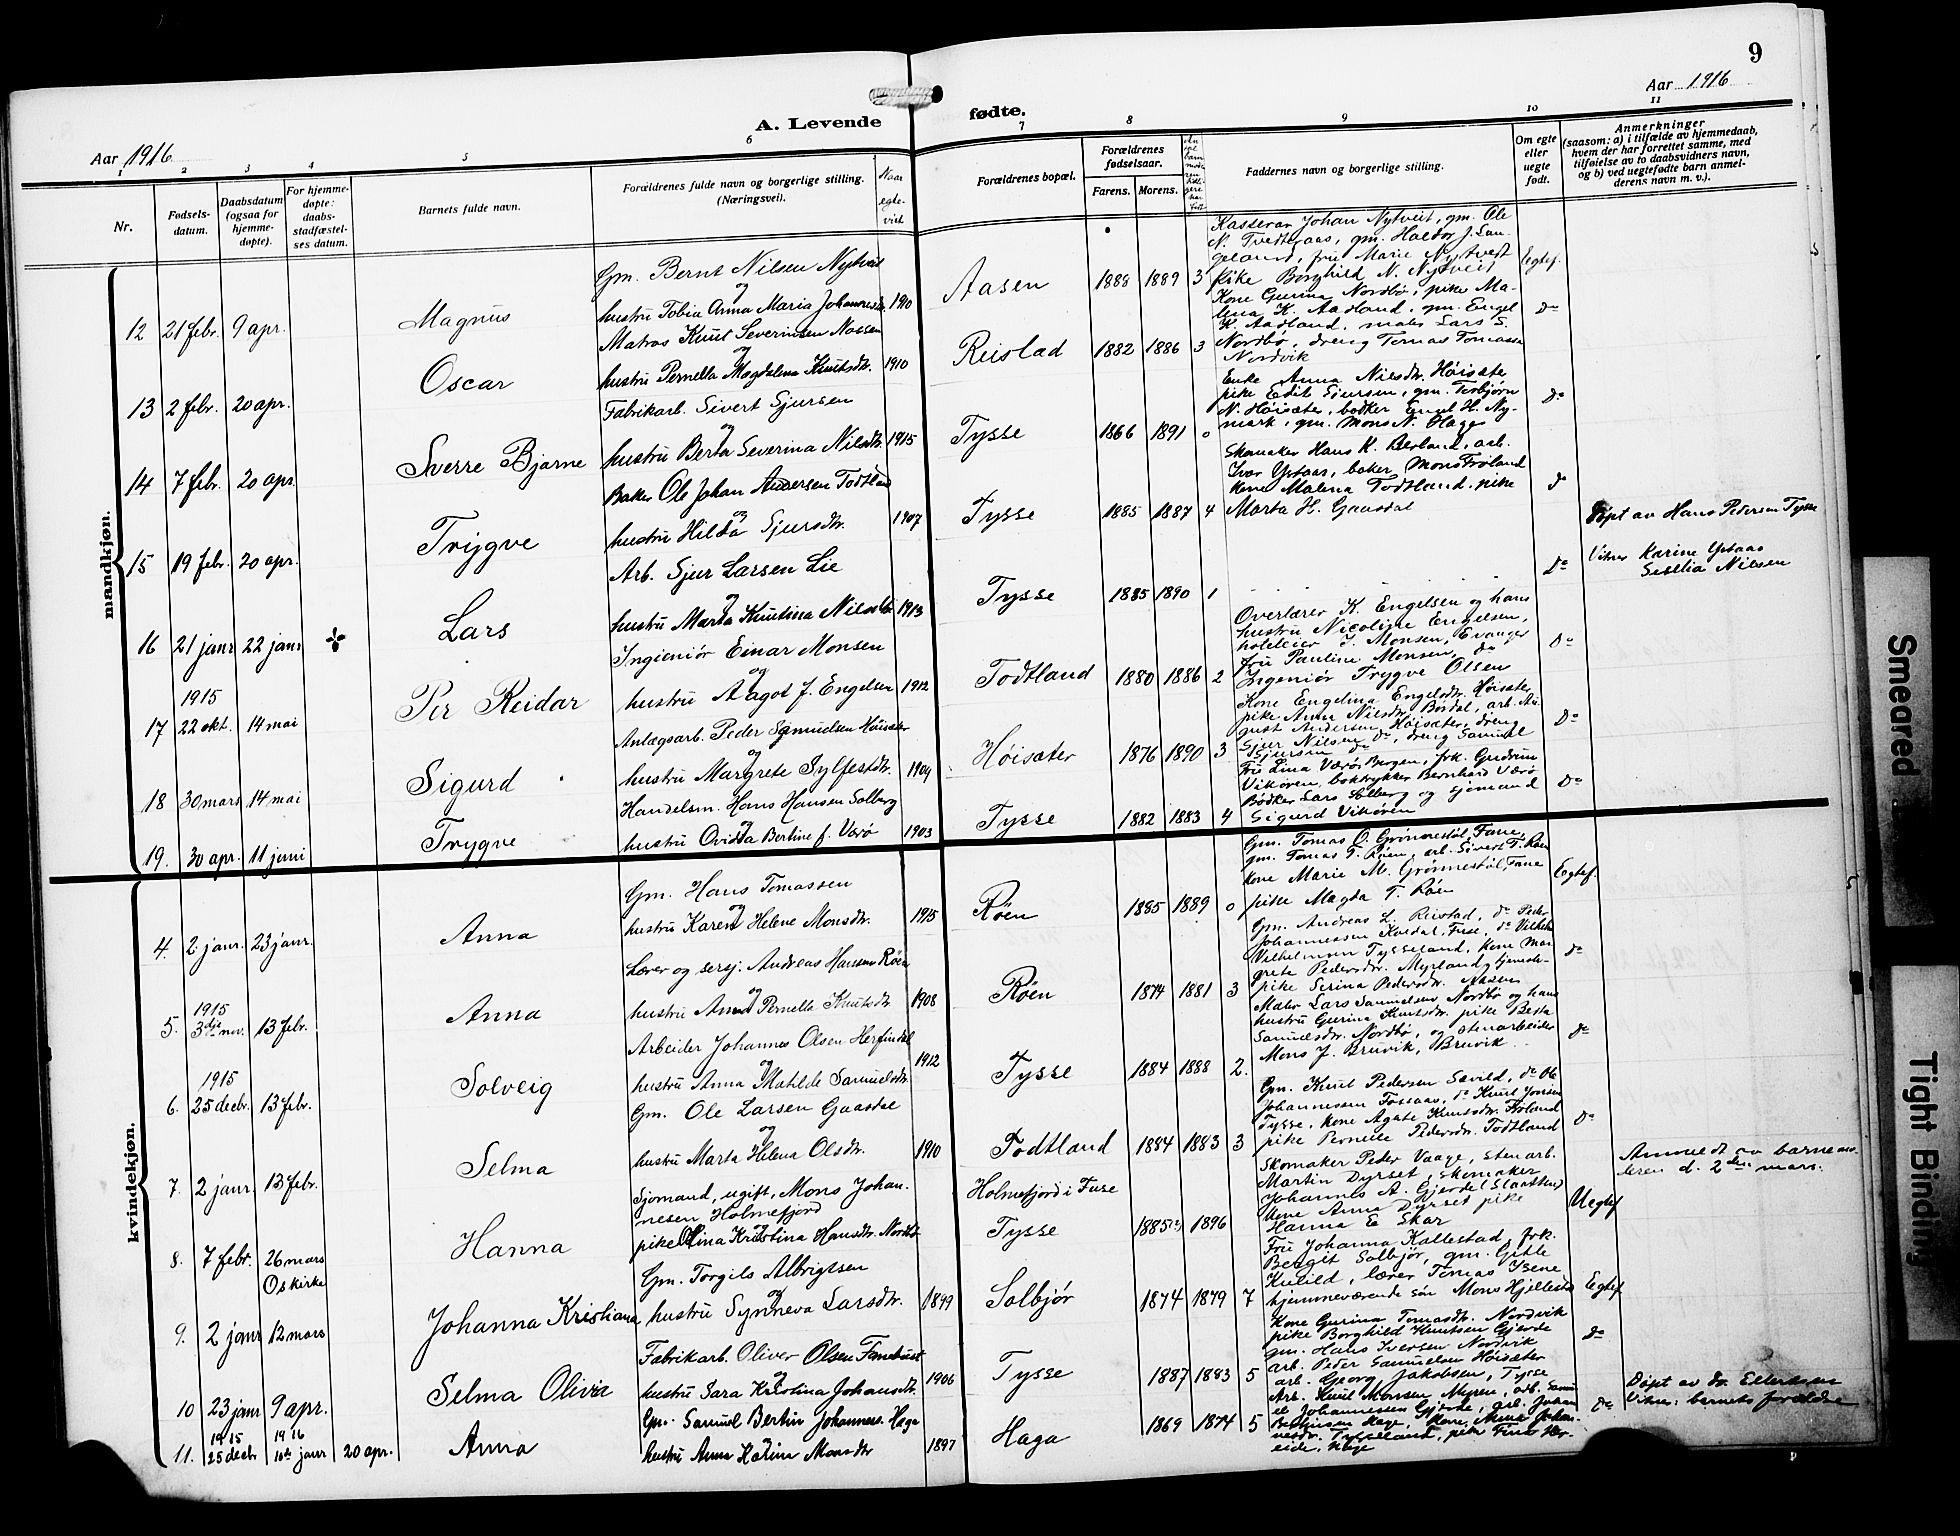 9
Aar 1916
Aar 1916
A. Levende
fødte.
1 2 3 4 5 6 7 8 9 10 11
Nr.
Fødsels-
datum.
Daabsdatum
(ogsaa for
hjemme-
døpte).
For hjemme-
døpte:
daabs-
stadfæstel-
ses datum.
Barnets fulde navn.
Forældrenes fulde navn og borgerlige stilling.
(Næringsvei).
Naar
egte-
viet
Forældrenes bopæl.
Forældrenes
fødselsaar.
Farens. Morens.
Faddernes navn og borgerlige stilling.
Om egte
eller
uegte
født.
Anmerkninger
(saasom: a) i tilfælde av hjemmedaab,
hvem der har forrettet samme, med
tilføielse av to daabsvidners navn,
og b) ved uegtefødte barn anmel-
derens navn m. v.).
mandkjøn.
12 21 febr. 9 apr. Magnus
Gm. Bernt Nilsen Nytveit
og
hustru Tobia Anna Maria Johannesdtr. 1910
Aasen 1888 1889 3
Kasserar Johan Nytveit, gm. Ole
N. Tvedteraas, gm. Haldor J. Lan-
geland, fru Marie Nytvedt
pike Borghild N. Nytveit
Egtef.
13 2 febr. 20 apr. Oscar
Matros Knut Severinsen
og
hustru Pernella Magdalena Knutsdtr. 1910
Reistad 1882 1886 3
Kone Gurina Nordbø, pike Ma-
lena K. Aadland, gm. Engel
K. Aadland, maler Lars S.
Nordbø, dreng Tomas Tomassen
Nordvik
Do
14 7 febr. 20 apr. Sverre Bjarne
Fabrikarb. Sivert Sjursen
og
hustru Berta Severina Nilsdtr. 1915
Tysse 1866 1891 0
Enke Anna Nilsdtr. Høisæter
pike Edit Sjursen, gm. Torbjørn
N. Høisæter, bødker Engel H. Ny-
mark, gm. Mons N. Hage
Do
15 19 febr. 20 apr. Trygve
Baker Ole Johan Andersen Todtland
og
hustru Hilda Sjursdtr. 1907
Tysse 1885 1887 4
Skomaker Hans K. Berland, arb.
Ivar Ystaas, baker Mons Frøland
kone Malena Todtland, pike
Marta H. Gaasdal
Do
16 21 janr 22 janr ✣ Lars
Arb. Sjur Larsen Lie
og
hustru Marta Knutina Nilsdtr 1913
Tysse 1885 1890 1
Do
Døpt av Hans Pedersen Tysse
Vitner Karine Ystaas
Sesilia Nilsen
1915
17 22 okt. 14 mai Per Reidar
Ingeniør Einar Monsen
og
hustru Aagot f. Engelsen 1912
Todtland 1880 1886 2
Overlærer K. Engelsen og hans
hustru Nicoline Engelsen,
hoteleier J. Monsen, Evanger
fru Pauline Monsen, do
Ingeniør Trygve Olsen
Do
18 30 mars 14 mai Sigurd
Anlægsarb. Peder Samuelsen Høisæter
og
hustru Margrete Sylfestdtr. 1909
Høisæter 1876 1890 3
Kone Engelina Engelsdtr. Høisæter
pike Anna Nilsdtr. Børdal, arb. Au-
gust Andersen Høisæter, dreng
Sjur Nilsen do, dreng Samuel
Sjursen do
Do
19. 30 apr. 11 juni Trygve
Handelsm. Hans Hansen Solberg
og
hustru Ovidia Bertine f. Værø 1903
Tysse 1882 1883 4
Fru Lina Værø Bergen, frk. Gudrun
Vikøren, boktrykker Bernhard Værø
Bødker Lars Solberg og sjømand
Sigurd Vikøren
Do
kvindekjøn.
4. 2 janr. 23 janr. Anna
Gm. Hans Tomassen
og
hustru Karen Helene Monsdtr. 1915
Røen 1885 1889 0
Gm. Tomas O. Grønnestøl, Fane,
gm. Tomas T. Røen, arb. Sivert T. Røen
kone Marie M. Grønnestøl, Fane
pike Magda T. Røen
Egtef.
1915
5. 3dje nov. 13 febr. Anna
Lærer og sersj. Andreas Hansen Røen
og
hustru Anna Pernella Knutsdtr 1908
Røen 1874 1881 3
Gm. Andreas L. Reistad, do Peder
Johannessen Koldal, Fuse, do Vilhelm
Vilhelmsen Tysseland, kone Mar-
grete Pedersdtr. Myrland, tjeneste-
pike Serina Pedersdtr. Aasen
Do
1915
6. 25 decbr. 13 febr. Solveig
Arbeider Johannes Olsen Herfindal
og
hustru Anna Matilde Samuelsdtr. 1912
Tysse 1884 1888 2.
Maler Lars Samuelsen Nordbø og hans
hustru Gurina Knutsdtr. pike Berta
Samuelsdtr. Nordbø, og stenarbeider
Mons J. Bruvik, Bruvik
Do
7. 2 janr. 13 febr. Selma
Gm. Ole Larsen Gaasdal
og
hustru Marta Helena Olsdtr. 1910
Todtland 1884 1883 3
Gm. Knut Pedersen Sævild, do Ole
Johannessen Fossaas, do Knut Jonsen
Tysse, kone Agate Knutsdtr. Frøland
pike Pernille Pedersdtr. Todtland
Do
8. 7 febr. 26 mars
Os kirke
Hanna
Sjømand, ugift, Mons Johan-
nesen Holmefjord
og
pike Olina Kristina Hansdtr. Nordbø
Holmefjord i Fuse
Tysse 1885(?) 1896
Skomaker Peder Vaage, stenarb.
Martin Dyrset, skomaker
Johannes A. Gjerde (Slaatten)
kone Anna Dyrset pike
Hanna E Skar
Uegtef
Anmeldt av barnemo-
deren d. 2den mars.
9. 2 janr 12 mars Johanna Kristiana
Gm. Torgils Albrigtsen
og
hustru Synneva Larsdtr. 1899
Solbjør 1874 1879 7
Fru Johanna Kallestad, frk.
Bergit Solbjør, gm. Gitle
Kvitild, lærer Tomas Ysene
hjemmeværende søn Mons Hjellestad
Egtef.
10 23 janr 9 apr. Selma Olivia
Fabrikarb. Oliver Olsen
og
hustru Sara Karolina Johansdtr. 1906
Tysse 1887 1883 5
Kone Gurina Tomasdtr. Nordvik
pike Borghild Knutsen Gjerde
gm. Hans Iversen Nordvik
arb. Peder Samuelsen Høisæter
arb. Georg Jakobsen, Tysse
do
1915 1916
11. 25 decbr 10de janr 20 apr. Anna
Gm. Samuel Bertin Johannes. Haga
og
hustru Anna Karina Monsdtr 1897
Haga 1869 1874 5
Arb. Knut Monsen Myren, arb. Samu-
el Johannessen Gjerde, arb. Johan
Bertinsen Hage, kone Anna Johan-
nesdtr. Tysseland, pike
Hage
do
Døpt av dr. Ellertsen
Vitner: barnets forældre
Smeared
Tight Binding